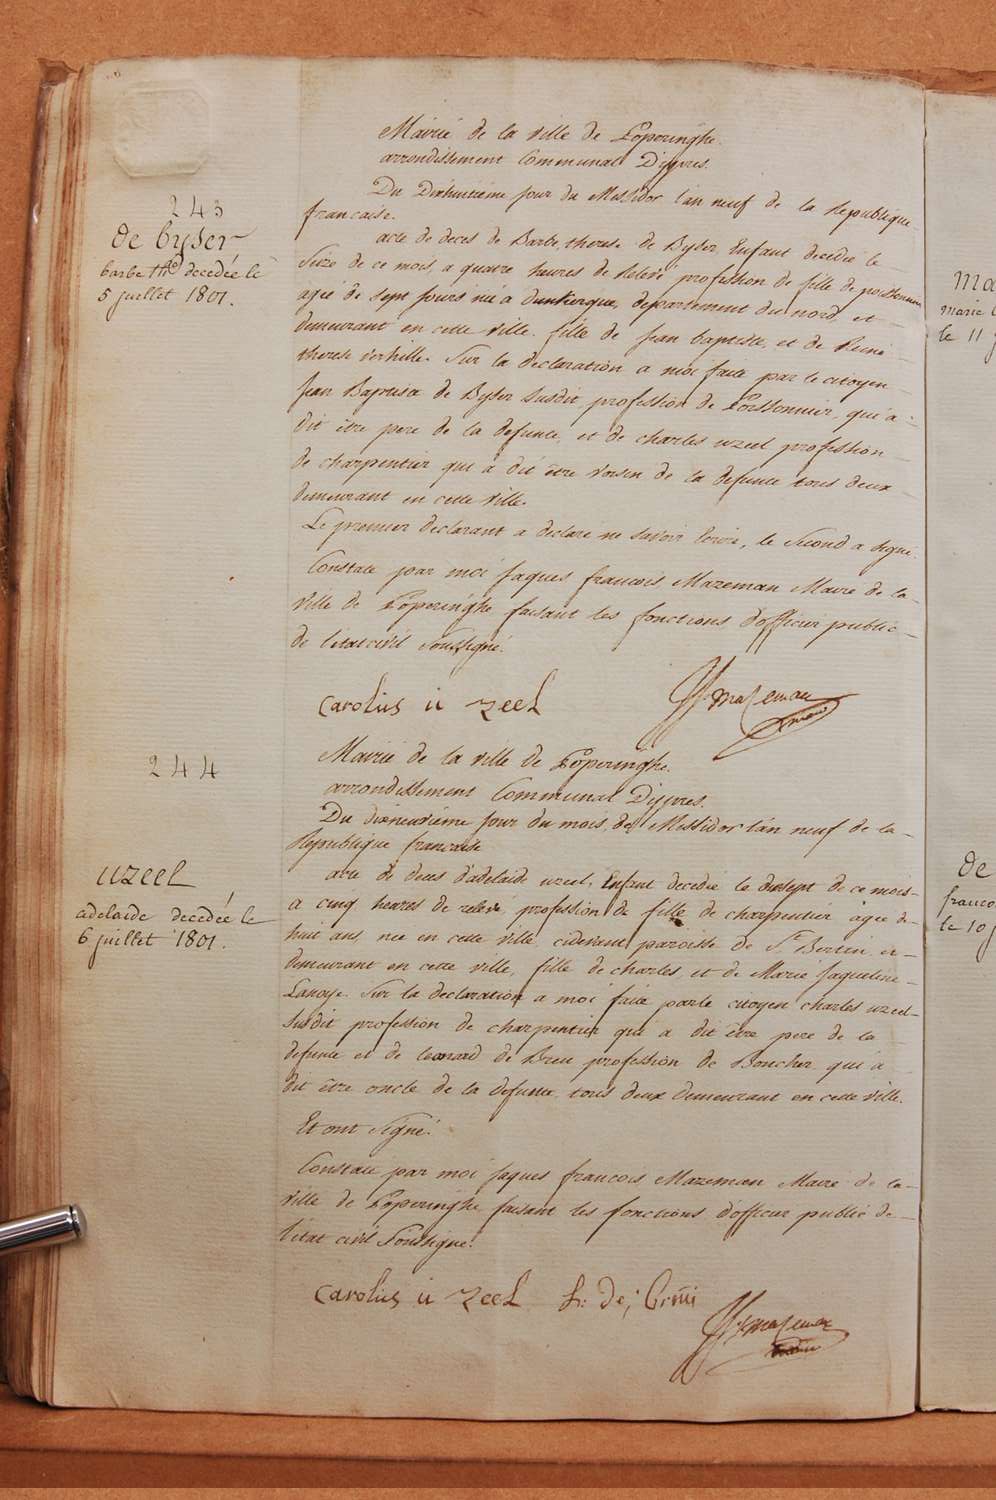 243
de byser
barbe th.e decedée le
5 juillet 1801.
Mairie de la ville de Poperinghe.
arrondissement Communal D'ypres.
Du Dixhuitieme jour du Messidor l'an neuf de la Republique
francaise.
acte de deces de Barbe, therese de Byser, Enfant decedée le
Seize de ce mois, a quatre heures de relevé profession de fille de poissonnier
agée de sept jours née a dunkerque, departement du nord, et
demeurant en cette ville. fille de Jean baptiste et de Reine
therese verhille. Sur la declaration a moi faite par le citoyen
Jean Baptista de Byser susdit, profession de Poissonnier, qui a
dit être pere de la defunte, et de charles uzeel profession
de charpentier qui a dit être voisin de la defunte tous deux
demeurant en cette ville.
Le premier declarant a declare ne savoir Ecrire, le second a signé.
Constaté par moi Jaques francois Mazeman Maire de la
ville de Poperinghe faisant les fonctions d'officier public
de l'etat civil soussigné.
Carolus u zeel
J f mazeman
maire
244
uzeel
adelaide decedée le
6 juillet 1801.
Mairie de la ville de Poperinghe.
arrondissement Communal D'ypres.
Du dixneuvieme jour du mois de Messidor l'an neuf de la
Republique francaise
acte de deces d'adelaide uzeel, Enfant decedée le dixsept de ce mois
a cinq heures de relevé, profession de fille de charpentier agée de
huit ans, née en cette ville cidevant paroisse de St Bertin et
demeurant en cette ville, fille de charles et de Marie Jaqueline
Lanoye. Sur la declaration a moi faite par le citoyen charles uzeel
susdit profession de charpentier qui a dit être pere de la
defunte et de leonard de Breu profession de Boucher qui a
dit être oncle de la defunte tous deux demeurant en cette ville.
Et ont signé.
Constaté par moi Jaques francois Mazeman Maire de la
ville de Poperinghe faisant les fonctions d'officier public de
l'etat civil soussigné.
Carolus u zeel
J f mazeman
marie
le 11
de
franco
le 10